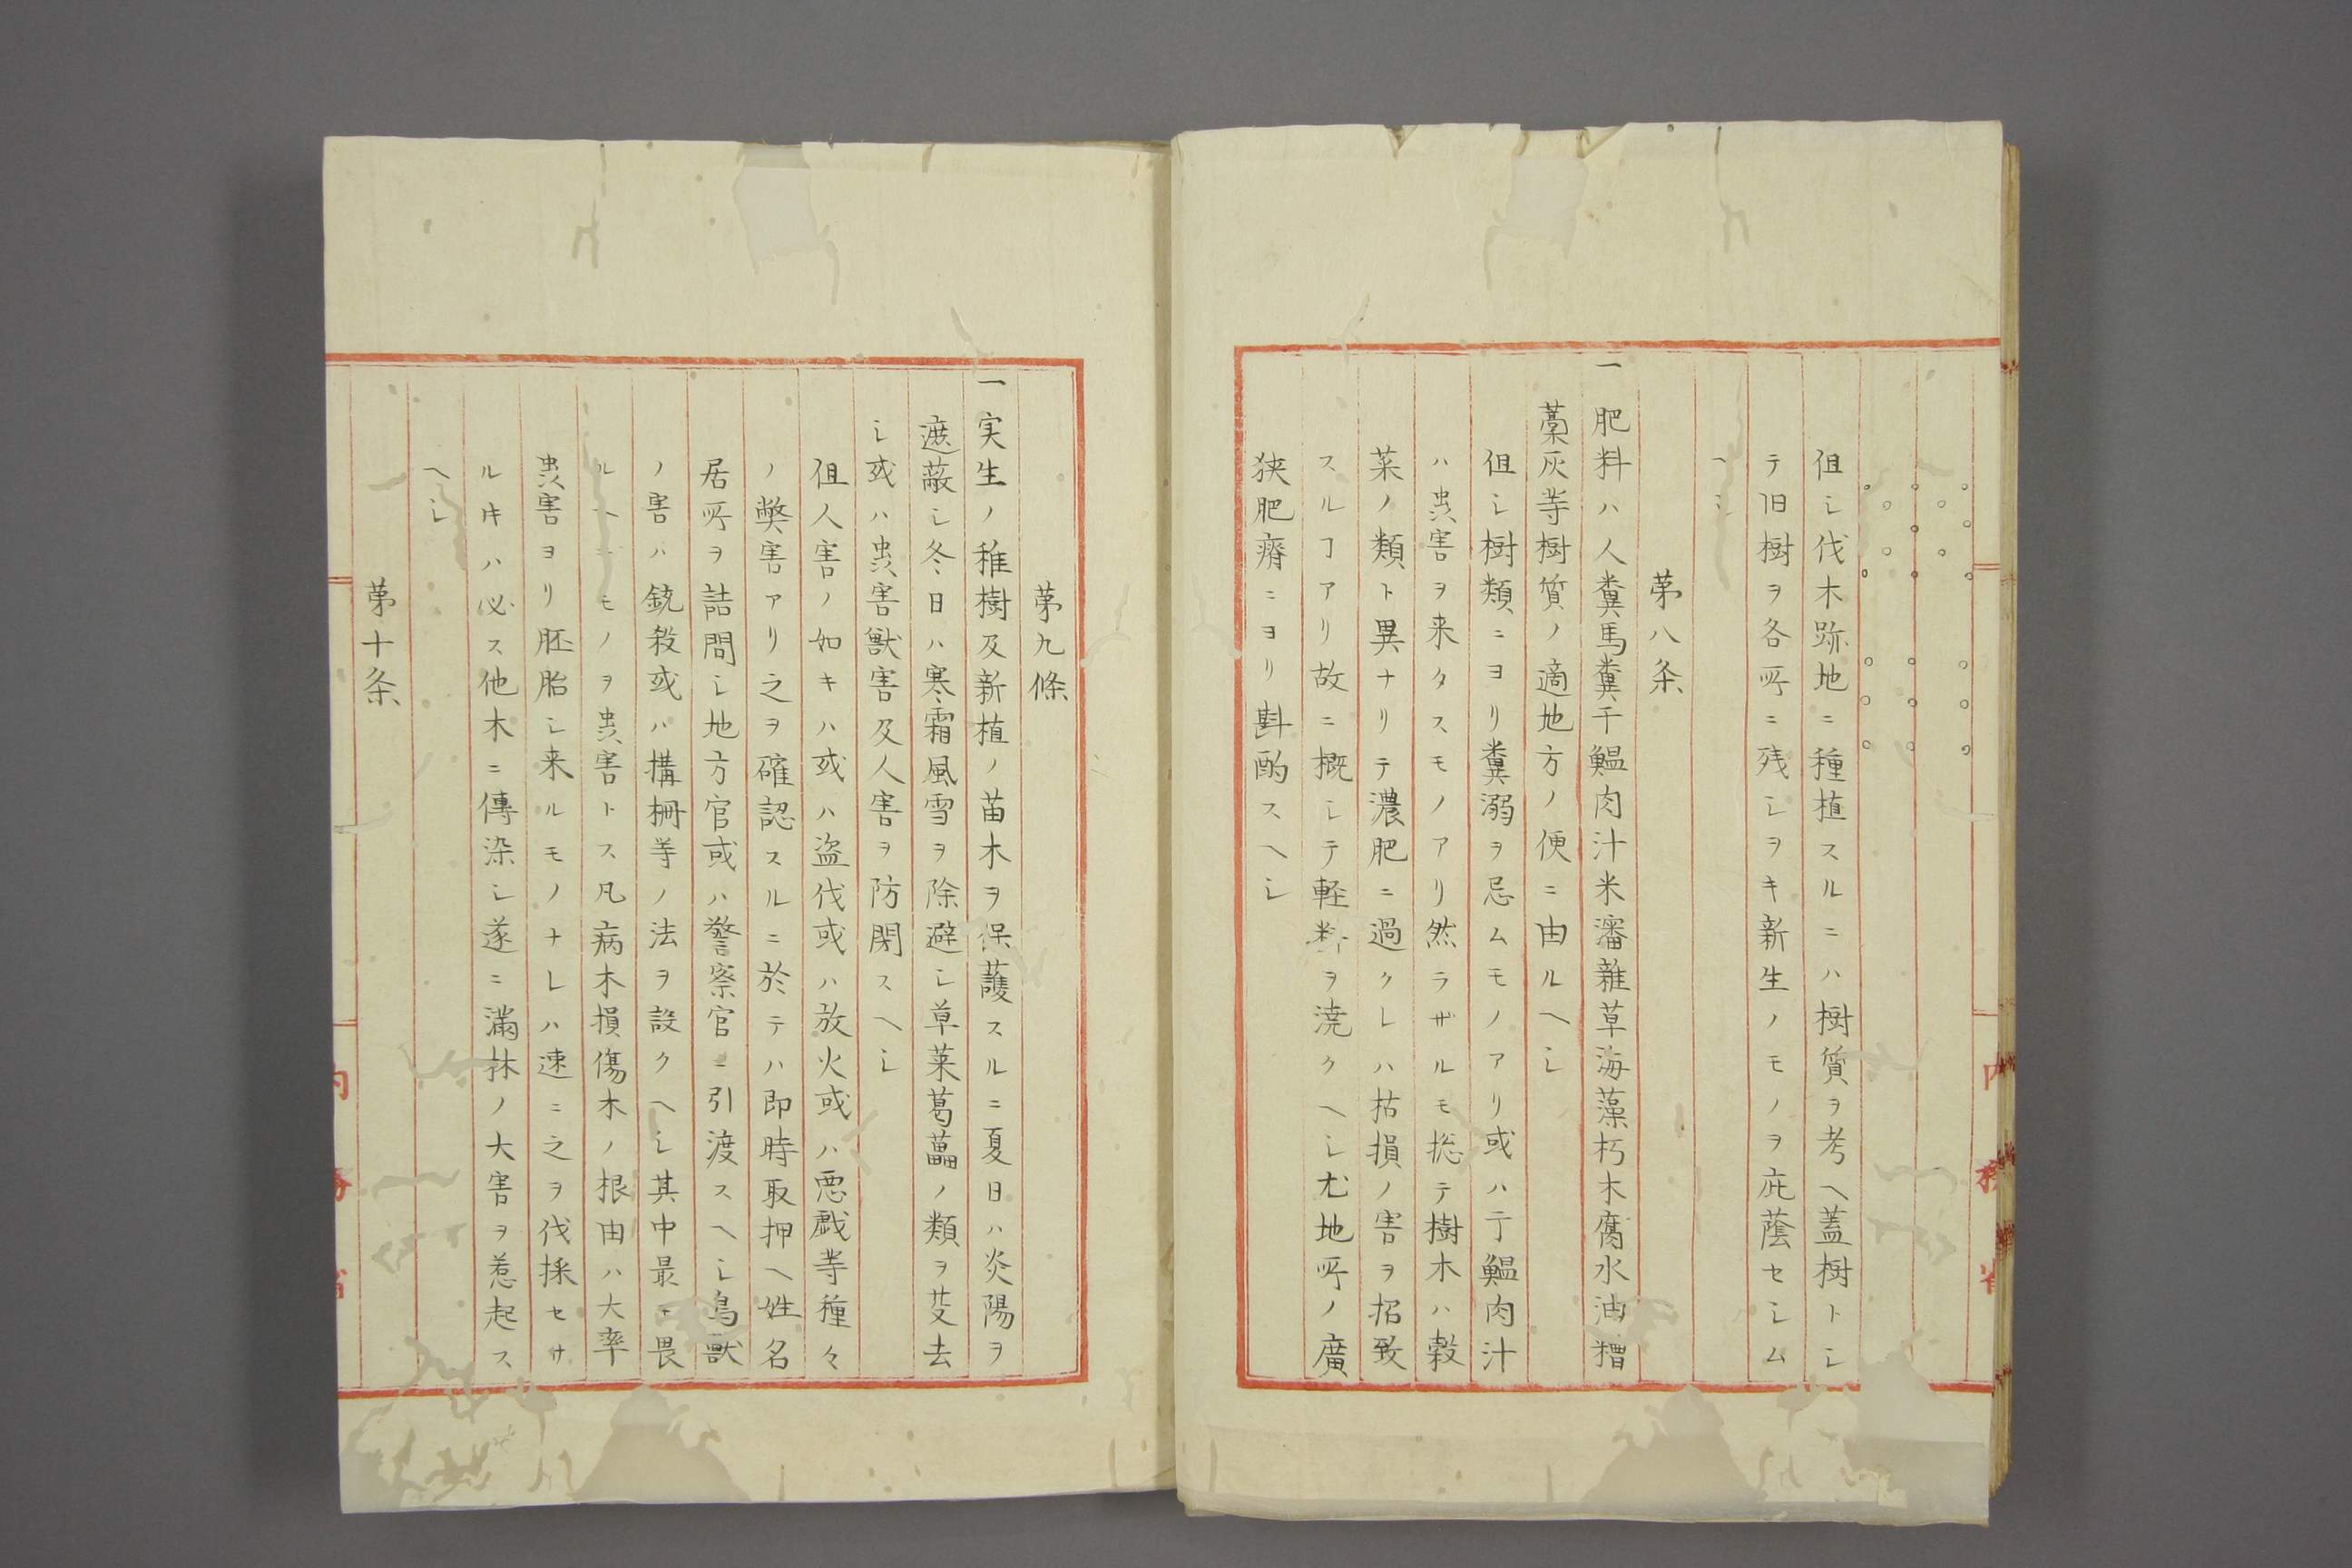 但シ伐木跡地ニ種植スルニハ樹質ヲ考ヘ蓋樹トシ
テ旧樹ヲ各所ニ残シヲキ新生ノモノヲ庇蔭セシム
ヘシ
第八条
一肥料ハ人糞馬糞干鰛肉汁米瀋雑草海藻朽木腐水油糟
藁灰等樹質ノ適地方ノ便ニ由ルヘシ
但シ樹類ニヨリ糞溺ヲ忌ムモノアリ或ハ干鰛肉汁
ハ虫害ヲ来タスモノアリ然ラザルモ総テ樹木ハ穀
菜ノ類ト異ナリテ濃肥ニ過クレハ枯損ノ害ヲ招致
スルヿアリ故ニ概シテ軽料ヲ澆クヘシ尤地所ノ廣
狭肥瘠ニヨリ斟酌スヘシ
内務省
第九條
一実生ノ稚樹及新植ノ苗木ヲ保護スルニ夏日ハ炎陽ヲ
遮蔽シ冬日ハ寒霜風雪ヲ除避シ草莱葛藟ノ類ヲ芟去
シ或ハ虫害獣害及人害ヲ防閑スヘシ
但人害ノ如キハ或ハ盗伐或ハ放火或ハ悪戯等種々
ノ弊害アリ之ヲ確認スルニ於テハ即時取押ヘ姓名
居所ヲ詰問シ地方官或ハ警察官ニ引渡スヘシ鳥獣
ノ害ハ銃殺或ハ構柵等ノ法ヲ設クヘシ其中最モ畏
ルヘキモノヲ虫害トス凡病木損傷木ノ根由ハ大率
虫害ヨリ胚胎シ来ルモノナレハ速ニ之ヲ伐採セサ
ルキハ必ス他木ニ傳染シ遂ニ満林ノ大害ヲ惹起ス
ヘシ
第十条
内務省